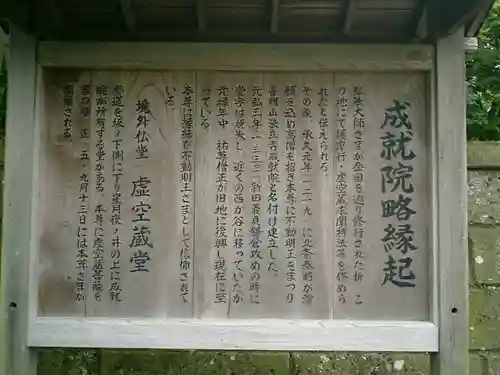 成就院略縁起
弘法大師さまが全国を巡り修行された折 こ
の地にて護摩行・虚空蔵求聞持法等を修めら
れたと伝えられる。
その後 承久元年(一二一九)に北条泰時が
願を込め高僧を招き本尊に不動明王をまつり
普明山法立寺成就院と名付け建立した。
元弘三年(一三三三)新田義貞鎌倉攻めの時
堂宇は焼失し 近くの西が谷に移っていたが
元禄年中 祐尊僧正が旧地に復興し現在に至
っている。
本尊は縁結び不動明王さまとして信仰されて
いる。
境外仏堂 虚空蔵堂
参道を坂ノ下側に下り星月夜ノ井の上に成就
院が所有する堂がある。本尊に虚空蔵菩薩を
五 九月十三日には本尊さまが
開扉される